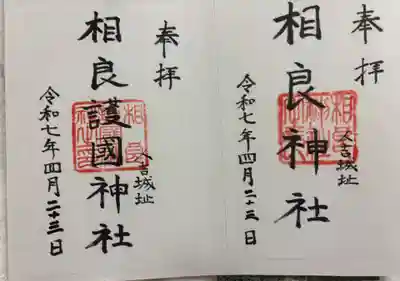 奉拝
相良神社
人吉城址
令和七年四月二十三日
奉拝
相良護國神社
人吉城址
令和七年四月二十三日